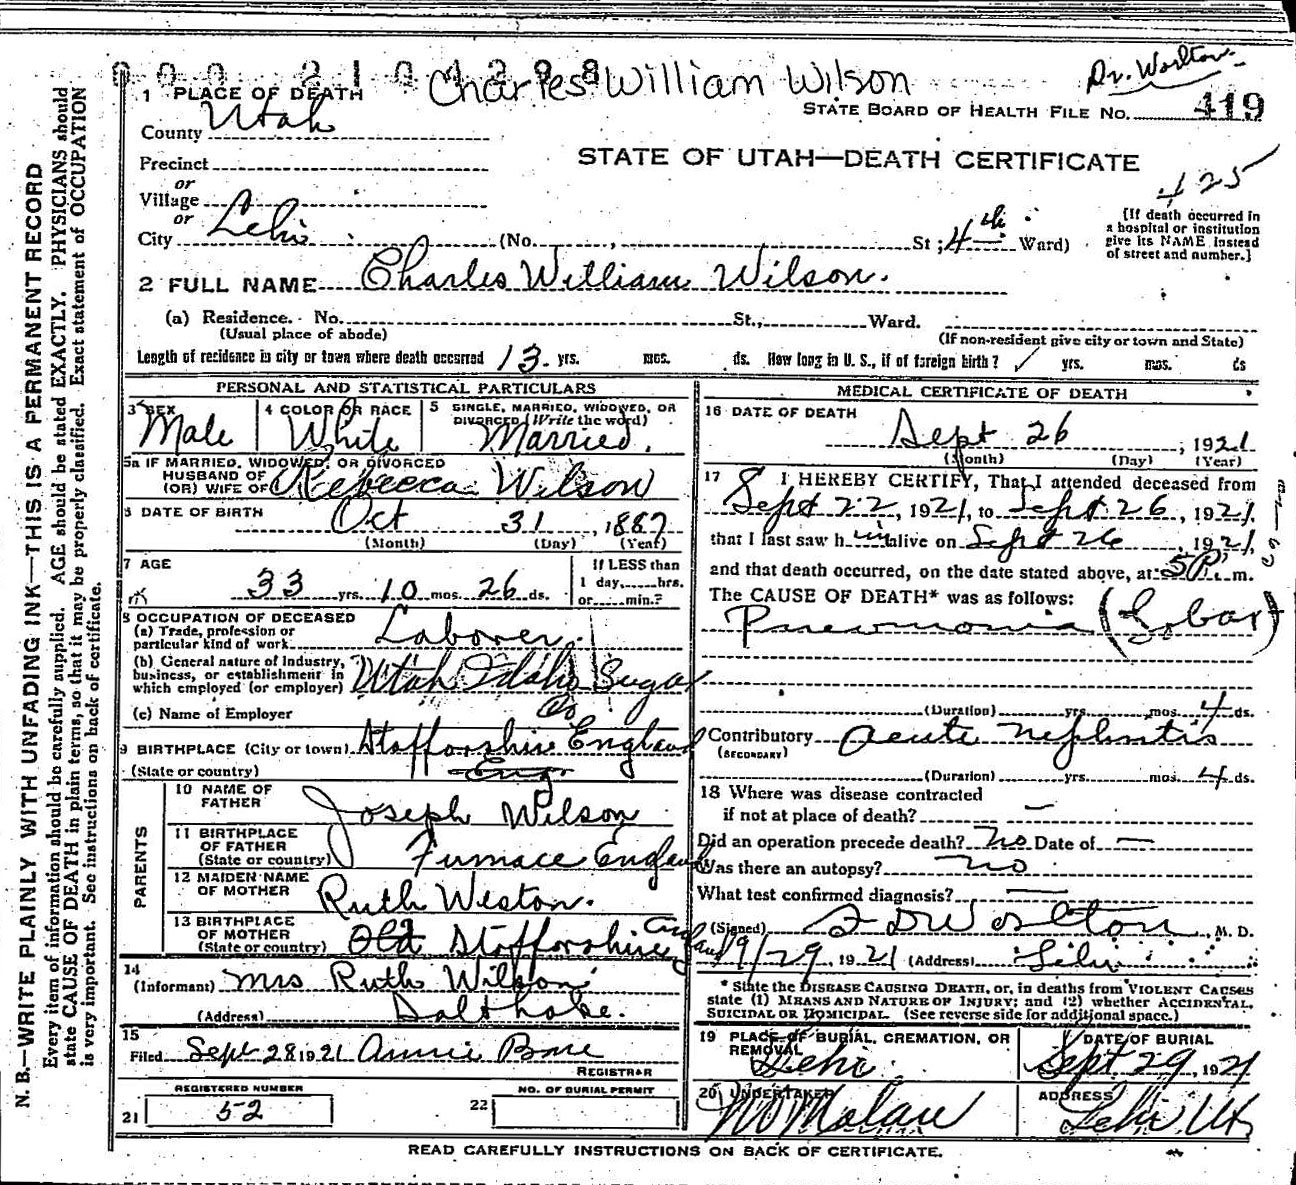 000 2101298
Charles William Wilson
Dr. Worlton
1 PLACE OF DEATH
STATE BOARD OF HEALTH FILE No. 419
County Utah
STATE OF UTAH—DEATH CERTIFICATE
Precinct
or
Village
425
or
City Lehi (No. , St ; 4th Ward)
[If death occurred in a hospital or institution give its NAME instead of street and number.]
2 FULL NAME Charles William Wilson.
(a) Residence. No. St., Ward.
(Usual place of abode) (If non-resident give city or town and State)
Length of residence in city or town where death occurred 13 yrs. mos. ds. How long in U. S., if of foreign birth? yrs. mos. ds
PERSONAL AND STATISTICAL PARTICULARS
3 SEX Male
4 COLOR OR RACE White
5 SINGLE, MARRIED, WIDOWED, OR DIVORCED (Write the word) Married.
5a IF MARRIED, WIDOWED, OR DIVORCED
HUSBAND OF
(OR) WIFE OF Rebecca Wilson
6 DATE OF BIRTH Oct 31, 1887
(Month) (Day) (Year)
7 AGE 33 yrs. 10 mos. 26 ds.
If LESS than
1 day,.....hrs.
or.....min.?
8 OCCUPATION OF DECEASED
(a) Trade, profession or
particular kind of work Laborer.
(b) General nature of industry,
business, or establishment in
which employed (or employer) Utah Idaho Sugar
Co
(c) Name of Employer
9 BIRTHPLACE (City or town) Stafforshire England
(State or country) Eng.
PARENTS
10 NAME OF
FATHER Joseph Wilson
11 BIRTHPLACE
OF FATHER
(State or country) Furnace England
12 MAIDEN NAME
OF MOTHER Ruth Weston.
13 BIRTHPLACE
OF MOTHER
(State or country) Old Stafforshire England
14
(Informant) Mrs Ruth Wilson
(Address)
15
Filed Sept 28 1921 Annie Bone
REGISTRAR
REGISTERED NUMBER
21 52
NO. OF BURIAL PERMIT
22
MEDICAL CERTIFICATE OF DEATH
16 DATE OF DEATH
Sept 26 , 1921
(Month) (Day) (Year)
17 I HEREBY CERTIFY, That I attended deceased from
Sept 22, 1921, to Sept 26, 1921,
that I last saw h im alive on Sept 26, 1921,
and that death occurred, on the date stated above, at 5 P. m.
The CAUSE OF DEATH* was as follows:
Pneumonia (Lobar)
(Duration) yrs. mos. 4 ds.
Contributory Acute Nephritis
(SECONDARY)
(Duration) yrs. mos. 4 ds.
18 Where was disease contracted
if not at place of death? —
Did an operation precede death? No Date of —
Was there an autopsy? no
What test confirmed diagnosis? —
(Signed) F D Worlton, M. D.
9/29, 1921 (Address) Lehi
* State the DISEASE CAUSING DEATH, or, in deaths from VIOLENT CAUSES
state (1) MEANS AND NATURE OF INJURY; and (2) whether ACCIDENTAL,
SUICIDAL OR HOMICIDAL. (See reverse side for additional space.)
19 PLACE OF BURIAL, CREMATION, OR
REMOVAL
Lehi
DATE OF BURIAL
Sept 29, 1921
20 UNDERTAKER
ADDRESS
Lehi Ut
READ CAREFULLY INSTRUCTIONS ON BACK OF CERTIFICATE.
N. B.—WRITE PLAINLY WITH UNFADING INK—THIS IS A PERMANENT RECORD
Every item of information should be carefully supplied. AGE should be stated EXACTLY. PHYSICIANS should
state CAUSE OF DEATH in plain terms, so that it may be properly classified. Exact statement of OCCUPATION
is very important. See instructions on back of certificate.